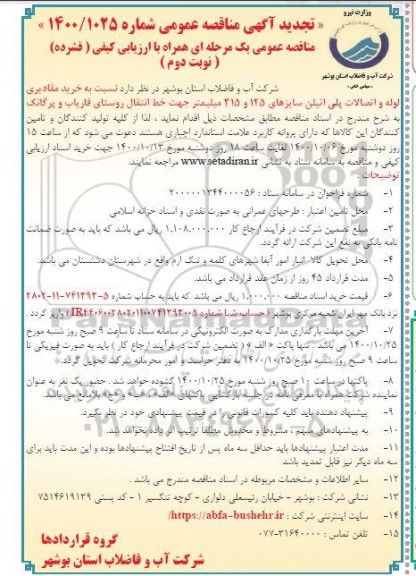 وزارت نیرو
شرکت آب و فاضلاب استان بوشهر
« تجدید آگهی مناقصه عمومی شماره ۱۴۰۰/۱۰۲۵ »
مناقصه عمومی یک مرحله ای همراه با ارزیابی کیفی ( فشرده )
( نوبت دوم )
شرکت آب و فاضلاب استان بوشهر در نظر دارد نسبت به خرید مقادیری
لوله و اتصالات پلی اتیلن سایزهای ۱۲۵ و ۳۱۵ میلیمتر جهت خط انتقال روستای فاریاب و پرگانک
به شرح مندرج در اسناد مناقصه مطابق مشخصات ذیل اقدام نماید ، لذا از کلیه تولید کنندگان و تامین
کنندگان این کالاها که دارای پروانه کاربرد علامت استاندارد اجباری هستند دعوت می شود که از ساعت ۱۵
روز دوشنبه مورخ ۱۴۰۰/۱۰/۰۶ لغایت ساعت ۱۸ روز دوشنبه مورخ ۱۴۰۰/۱۰/۱۳ جهت خرید اسناد ارزیابی
کیفی و مناقصه به سامانه ستاد به نشانی www.setadiran.ir مراجعه نمایند.
توضیحات :
۱- شماره فراخوان در سامانه ستاد : ۲۰۰۰۰۰۱۳۴۴۰۰۰۰۵۶
۲- محل تامین اعتبار : طرحهای عمرانی به صورت نقدی و اسناد خزانه اسلامی
۳- مبلغ تضمین شرکت در فرآیند ارجاع کار ۱.۱۰۸.۰۰۰.۰۰۰ ریال می باشد که باید به صورت ضمانت
نامه بانکی به نفع این شرکت ارائه گردد.
۴- محل تحویل کالا: انبار امور آبفا شهرهای کلمه و تنگ ارم واقع در شهرستان دشتستان می باشد.
۵- مدت قرارداد ۴۵ روز از زمان عقد قرارداد می باشد.
۶- قیمت خرید اسناد مناقصه ۱.۰۰۰.۰۰۰ ریال می باشد که باید به حساب شماره ۵-۷۴۱۳۹۳-۱۱-۲۸۰۲
نزد بانک مهر ایران شعبه مرکزی بوشهر واریز گردد .
۷- آخرین مهلت بارگذاری مدارک به صورت الکترونیکی در سامانه ستاد تا ساعت ۹ صبح روز شنبه مورخ
۱۴۰۰/۱۰/۲۵ می باشد. تنها پاکت « الف » ( تضمین شرکت در فرآیند ارجاع کار ) باید به صورت فیزیکی تا
ساعت ۹ صبح روز شنبه مورخ ۱۴۰۰/۱۰/۲۵ به دفتر حراست و امور محرمانه شرکت تحویل گردد.
۸- پاکتها در ساعت ۱۰ صبح روز شنبه مورخ ۱۴۰۰/۱۰/۲۵ گشوده خواهد شد . حضور یک نفر به عنوان
نماینده شرکت همراه با معرفی نامه در جلسه بازگشایی پاکتهای «الف»، «ب» و «ج» بلامانع می باشد.
۹- پیشنهاد دهنده باید کلیه کسورات قانونی را در قیمت پیشنهادی خود در نظر بگیرد.
۱۰- به پیشنهادهای مبهم ، مشروط و مخدوش مطلقا ترتیب اثر داده نخواهد شد.
۱۱- مدت اعتبار پیشنهادها باید حداقل سه ماه پس از تاریخ افتتاح پیشنهادها بوده و این مدت باید برای
سه ماه دیگر نیز قابل تمدید باشد
۱۲- سایر اطلاعات و مشخصات مربوطه در اسناد مناقصه مندرج می باشد .
۱۳- نشانی شرکت : بوشهر - خیابان رئیسعلی دلواری - کوچه تنگسیر ۱ - کد پستی ۷۵۱۴۶۱۹۱۳۹
۱۴- سایت اینترنتی شرکت : https://abfa-bushehr.ir/
۱۵- تلفن تماس : ۳۱۶۴۰۰۰۰-۰۷۷
گروه قراردادها
شرکت آب و فاضلاب استان بوشهر